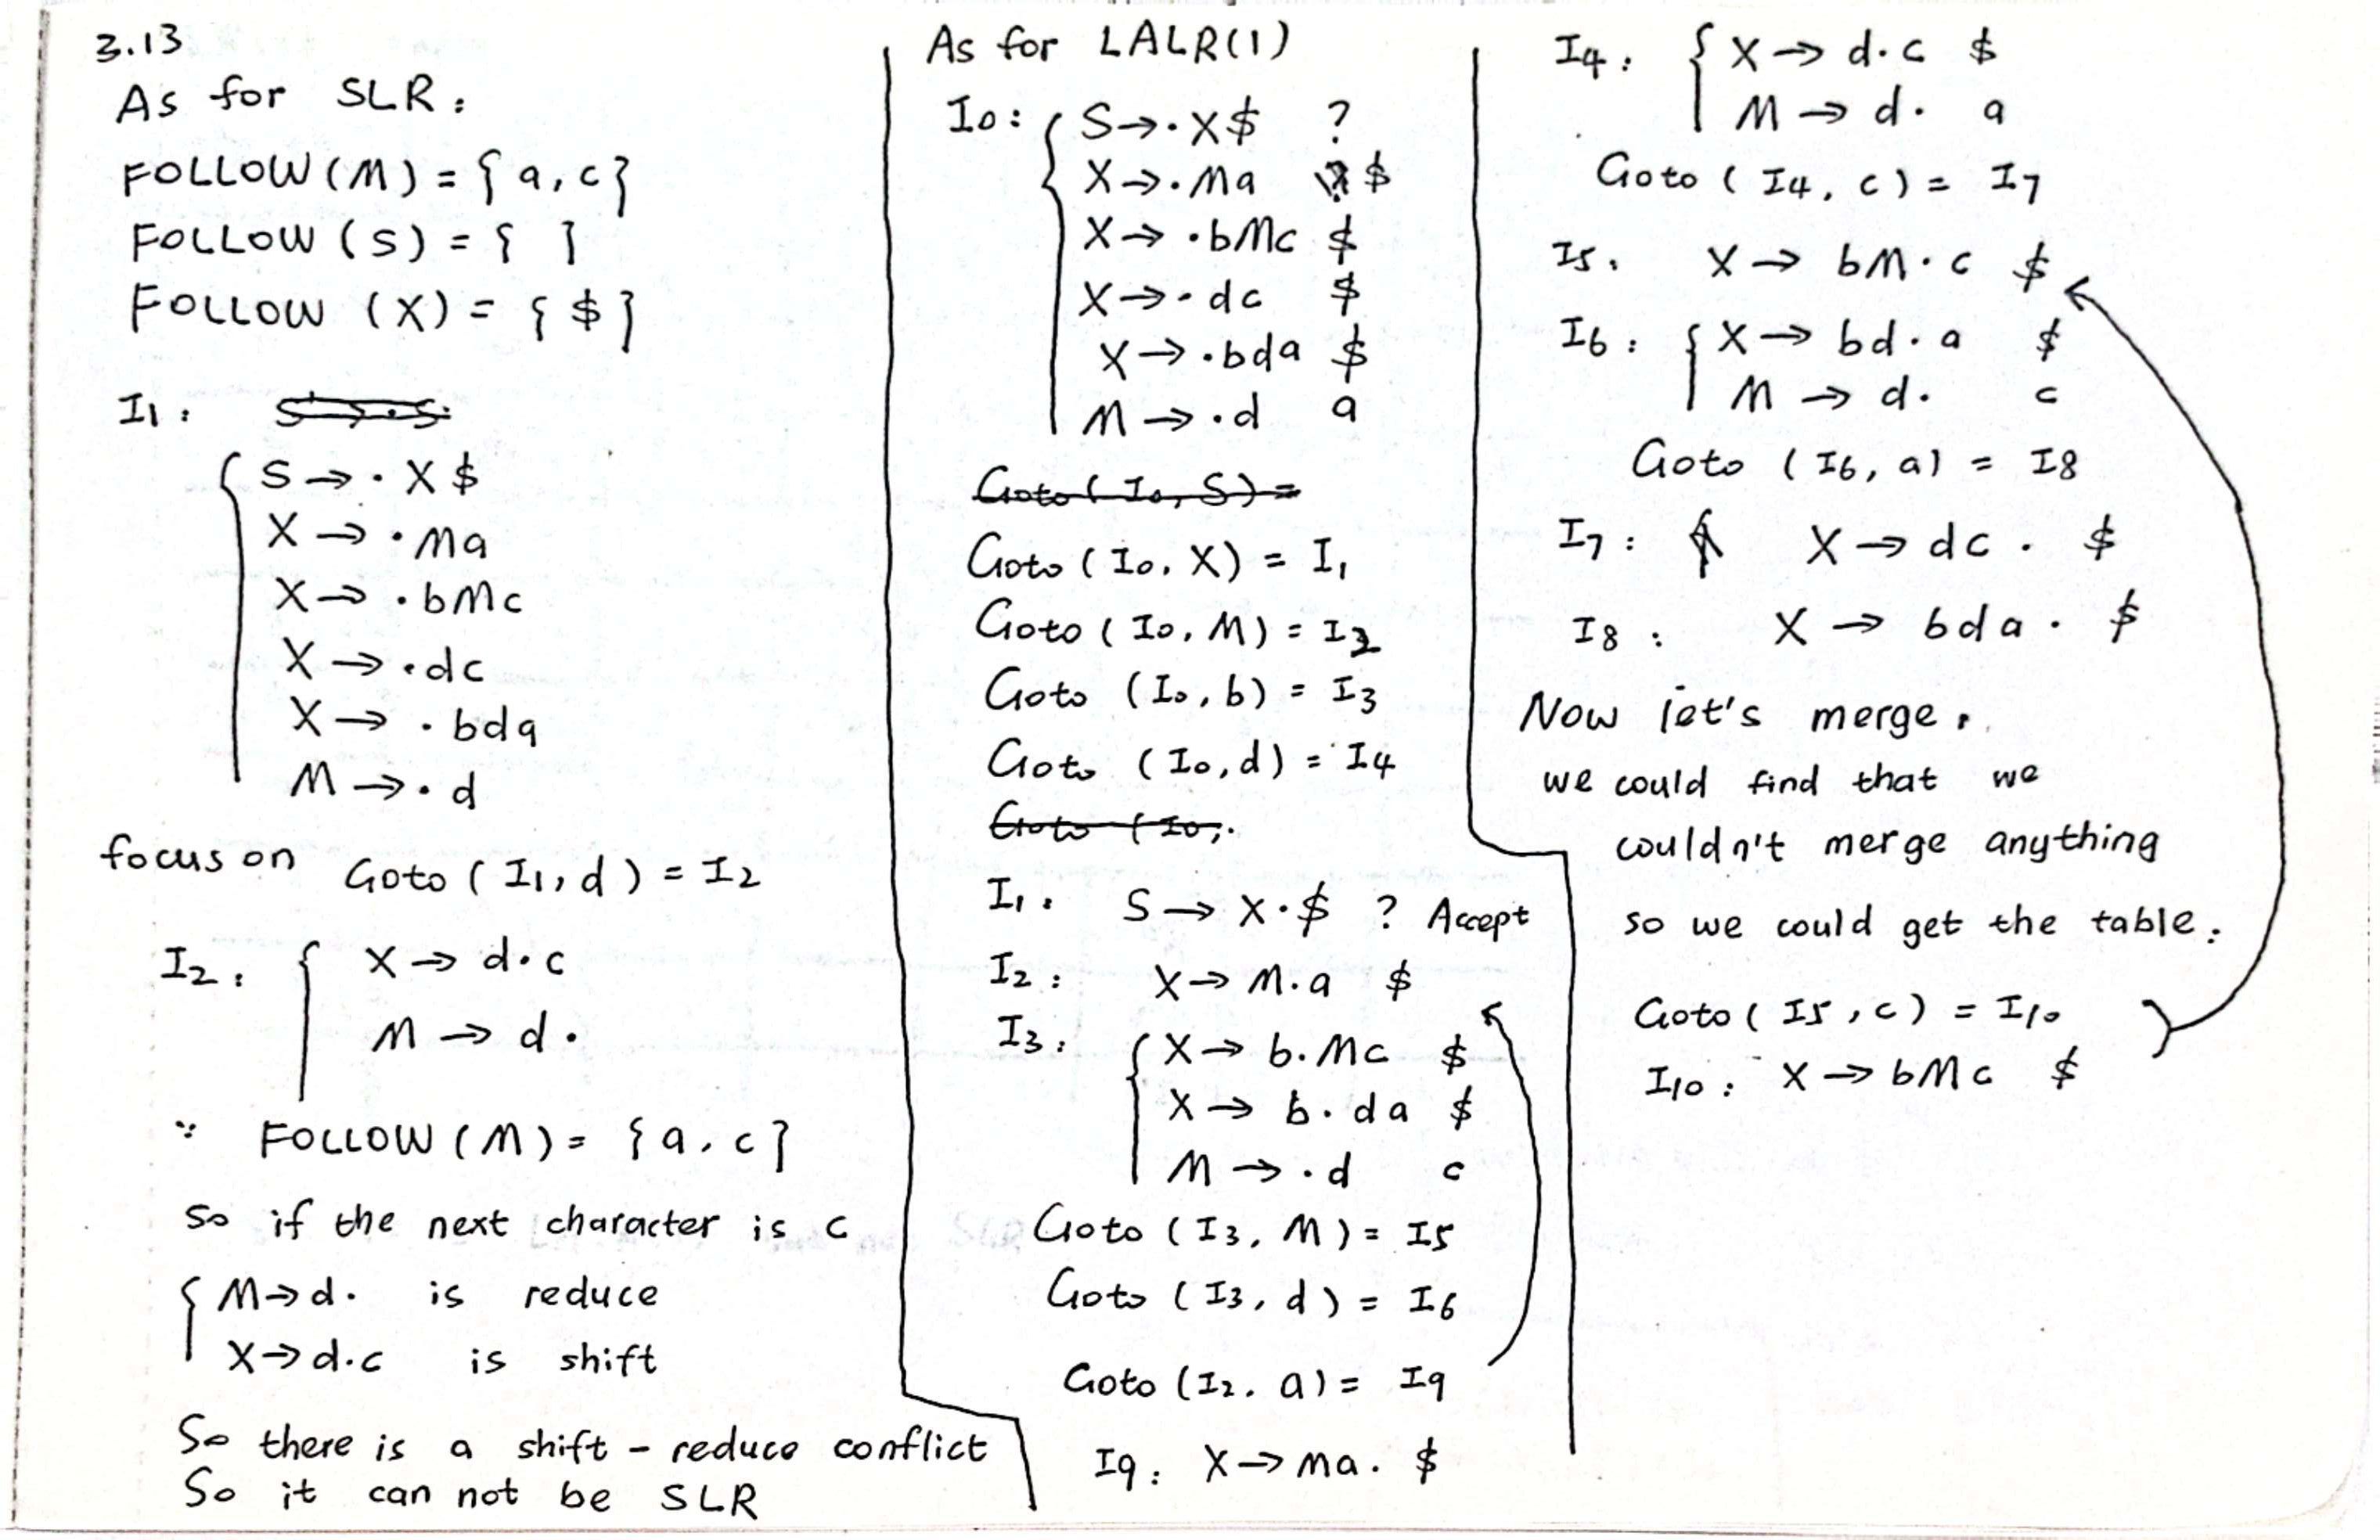 3.13
As for SLR:
FOLLOW (M) = { a, c }
FOLLOW (S) = { }
FOLLOW (X) = { $ }
I1:
S → · X $
X → · Ma
X → · bMc
X → · dc
X → · bda
M → · d
focus on Goto ( I1, d ) = I2
I2: { X → d · c
M → d ·
∵ FOLLOW (M) = { a, c }
so if the next character is c
{ M → d · is reduce
X → d · c is shift
So there is a shift - reduce conflict
So it can not be SLR
As for LALR(1)
I0: { S → · X $ ?
X → · Ma $
X → · bMc $
X → · dc $
X → · bda $
M → · d a
Goto ( I0, S ) =
Goto ( I0, X ) = I1
Goto ( I0, M ) = I2
Goto ( I0, b ) = I3
Goto ( I0, d ) = I4
Goto ( I0,
I1: S → X · $ ? Accept
I2: X → M · a $
I3: { X → b · Mc $
X → b · da $
M → · d c
Goto ( I3, M ) = I5
Goto ( I3, d ) = I6
Goto ( I2, a ) = I9
I9: X → Ma · $
I4: { X → d · c $
M → d · a
Goto ( I4, c ) = I7
I5: X → bM · c $
I6: { X → bd · a $
M → d · c
Goto ( I6, a ) = I8
I7: X → dc · $
I8: X → bda · $
Now let's merge.
we could find that we
couldn't merge anything
so we could get the table.
Goto ( I5, c ) = I10
I10: X → bMc $